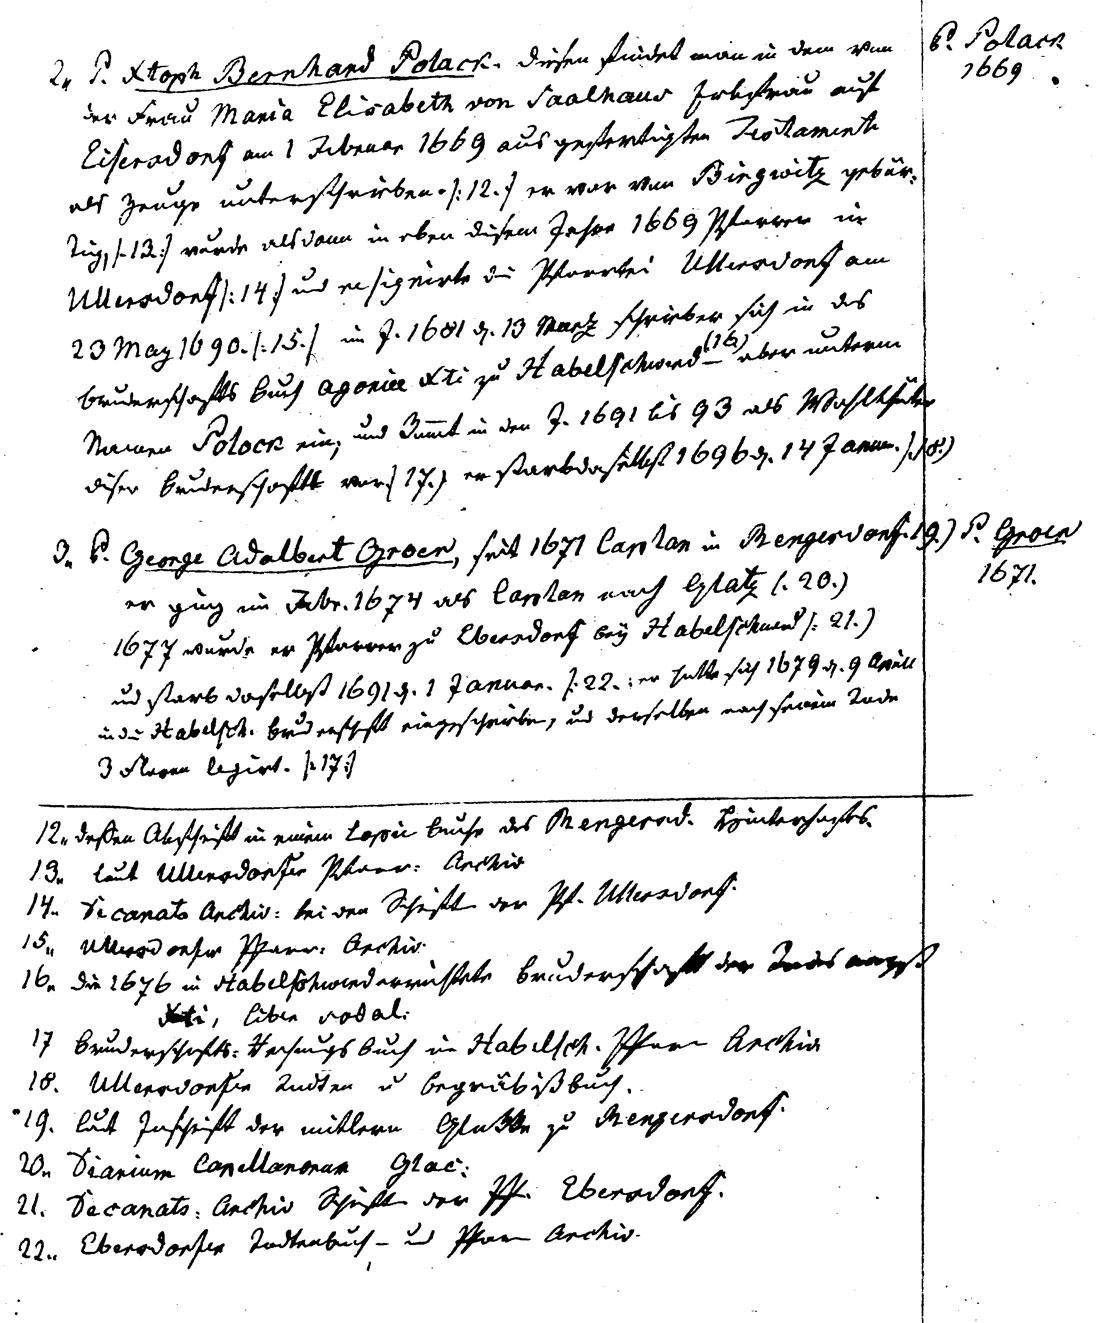 2. P. Xtoph Bernhard Polack. diesen findet man in dem von
der Frau Maria Elisabeth von Saalhaus Erbfrau auf
Eisersdorf am 1 Februar 1669 ausgefertigten Testamente
als Zeuge unterschrieben. /:12.:/ er war von Biegwitz gebür-
tig, /:13:/ wurde alsdann in eben disem Jahre 1669 Pfarrer in
Ullersdorf /:14:/ und resignirte die Pfarrei Ullersdorf am
23 May 1690. /:15./ im J. 1681 d. 13 Martz schrieber sich in das
bruderschafts buch agoniae Xti zu Habelschwerd (16) aber unterm
Namen Polock ein, und kommt in den J. 1691 bis 93 als
diser bruderschafft vor /17./ er starb daselbst 1696 d. 14 Januar. /:18:)
P. Polack
1669
3. P. George Adalbert Groer, seit 1671 Caplan in Rengersdorf. 19.)
er ging im Febr. 1674 als Caplan nach Glatz (. 20.)
1677 wurde er Pfarrer zu Ebersdorf beÿ Habelschwerd /: 21.)
und starb daselbst 1691 d. 1 Januar. /:22.: er hatte sich 1679 d. 9 Aprill
in die Habelsch. bruderschaft eingeschriebn, und derselben nach seinem Tode
3 Floren legirt. /:17:/
P. Groer
1671.
12. dessen Abschrift in einem Copie buche des Rengersd.
13. laut Ullersdorfer Pfarr: Archiv
14. Decanats Archiv: bei den Schrift der Pf. Ullersdorf.
15. Ullersdorfer Pfarr: Archiv.
16. Die 1676 in Habelschwerd errichtete bruderschafft der Todes angst
Xti, liber sodal:
17 bruderschafts: Rechnungs buch in Habelsch. Pfarr Archiv
18. Ullersdorfer Todten u begräbißbuch.
19. laut Inschrift der mitlern Glokke zu Rengersdorf.
20. Diarium Capellanorum Glac:
21. Decanats: Archiv Schrift der Pf. Ebersdorf.
22. Ebersdorfer Todtenbuch - und Pfarr Archiv.